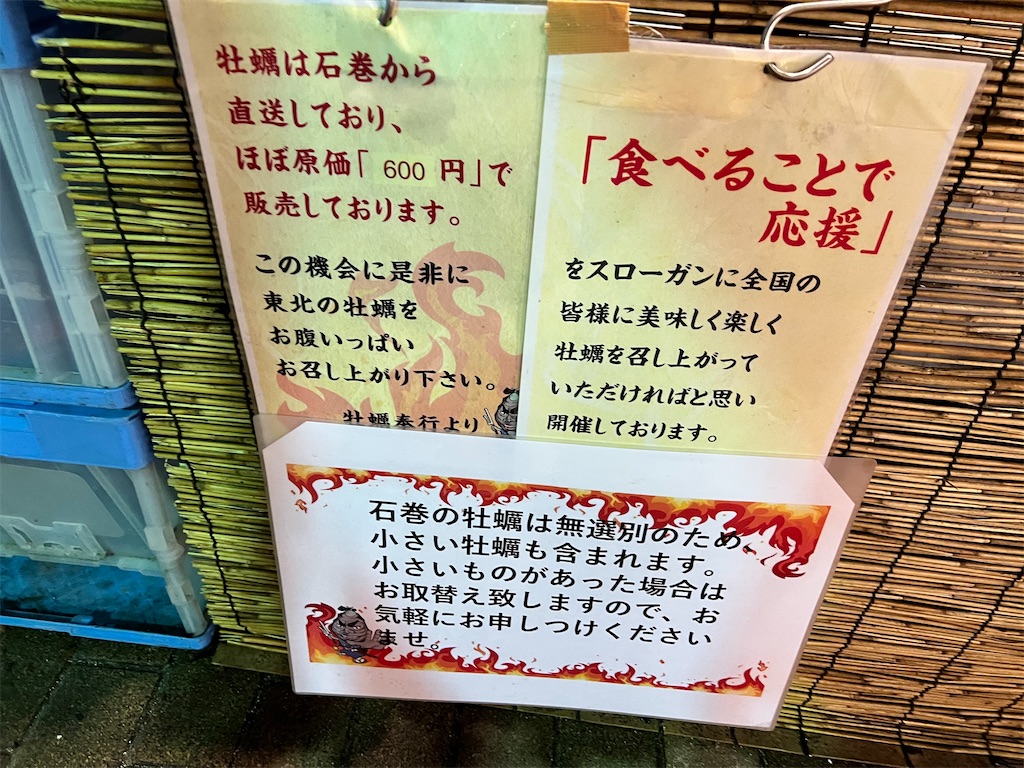 牡蠣は石巻から
直送しており、
ほぼ原価「 600 円」で
販売しております。
この機会に是非に
東北の牡蠣を
お腹いっぱい
お召し上がり下さい。
牡蠣奉行より
「食べることで
応援」
をスローガンに全国の
皆様に美味しく楽しく
牡蠣を召し上がって
いただければと思い
開催しております。
石巻の牡蠣は無選別のため、
小さい牡蠣も含まれます。
小さいものがあった場合は
お取替え致しますので、お
気軽にお申しつけください
ませ。